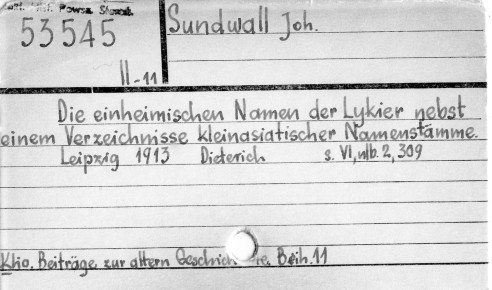 Powsz.
53545
Sundwall Joh.
II-11
Die einheimischen Namen der Lykier nebst
einem Verzeichnisse kleinasiatischer Namenstämme.
Leipzig 1913 Dieterich s. VI, nlb. 2, 309
Klio, Beiträge zur altern Beih. 11